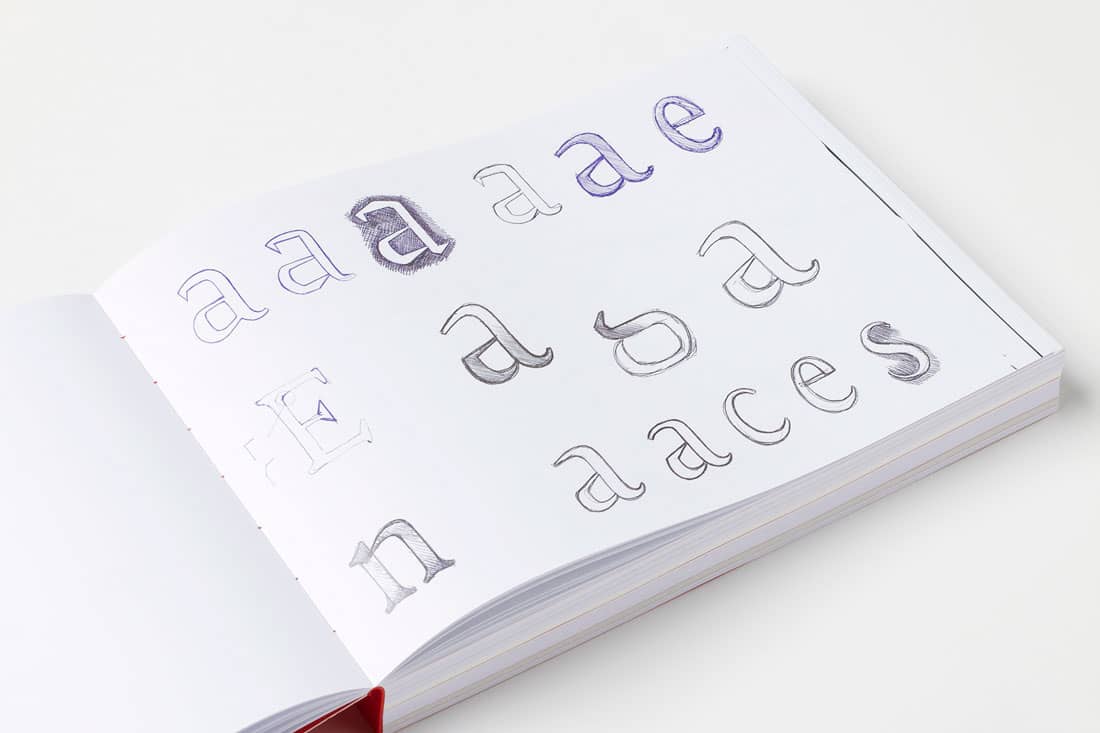 a a a a a e
a a
E
a a c e s
n